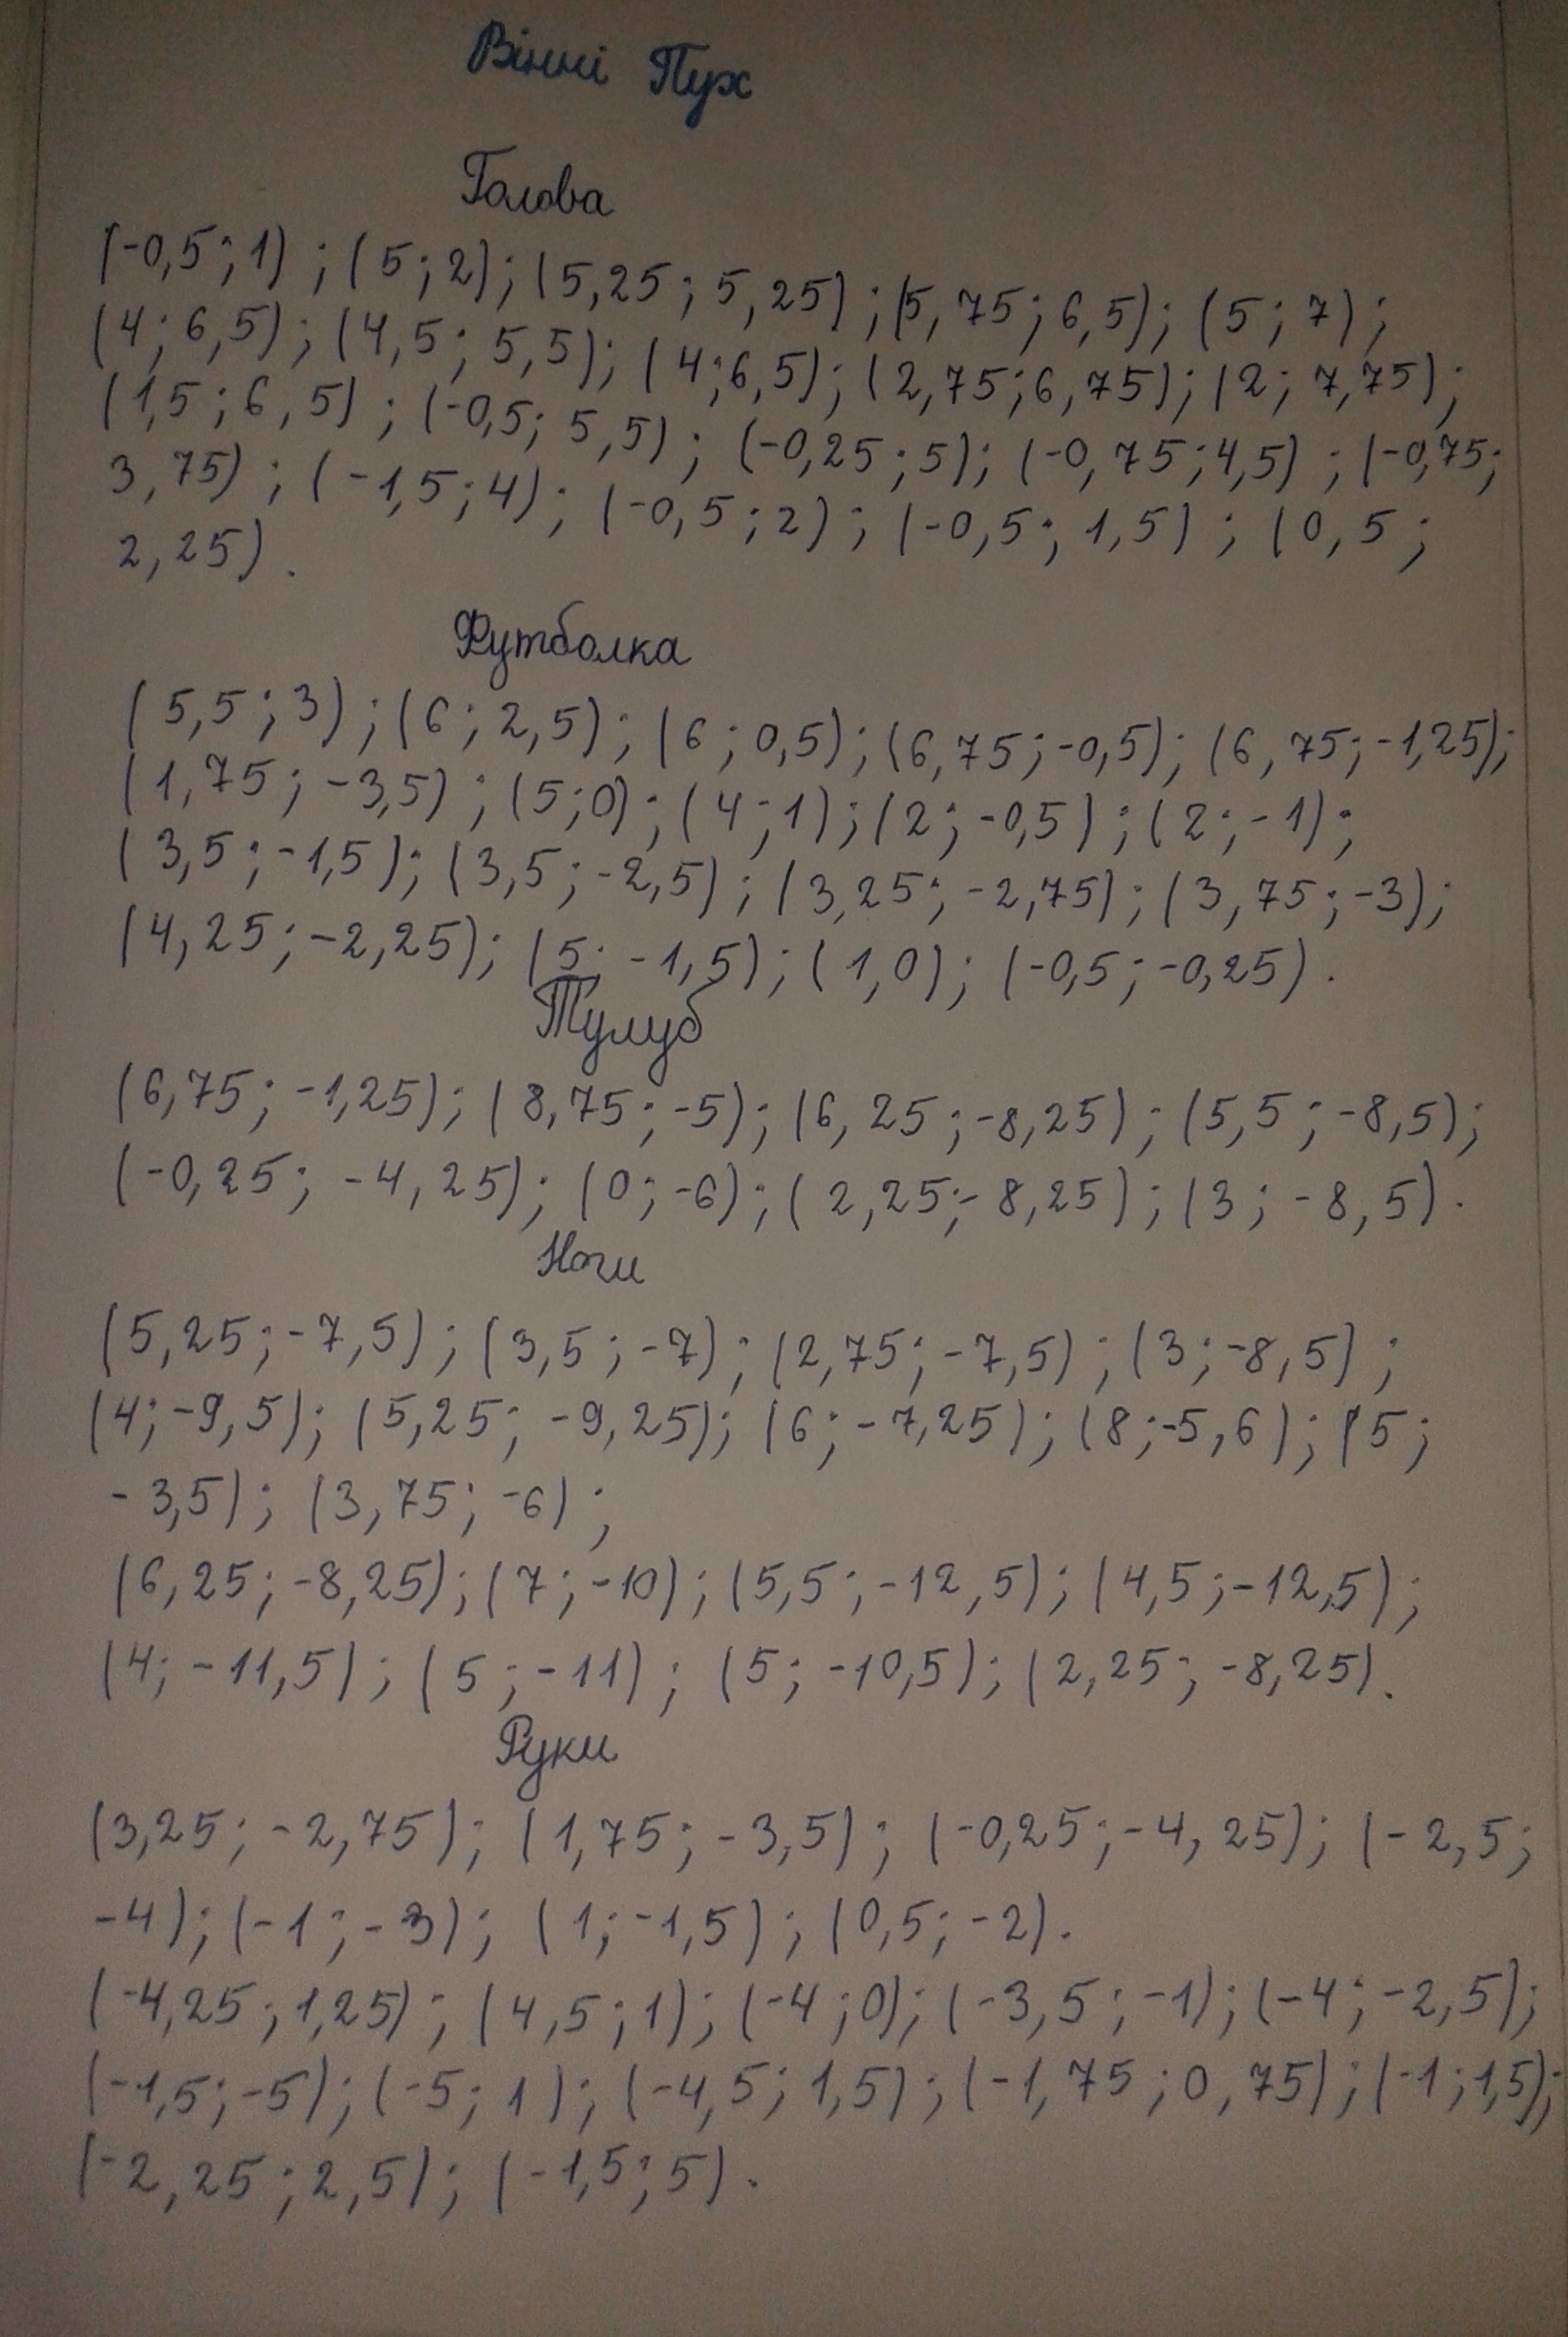 Вінні Пух
Голова
(-0,5; 1) ; (5; 2); (5,25; 5,25) ; (5,75; 6,5); (5; 7) ;
(4; 6,5) ; (4,5; 5,5); (4; 6,5); (2,75; 6,75); (2; 7,75);
(1,5; 6,5) ; (-0,5; 5,5) ; (-0,25; 5); (-0,75; 4,5) ; (-0,75;
3,75) ; (-1,5; 4) ; (-0,5; 2) ; (-0,5; 1,5) ; (0,5;
2,25).
Футболка
(5,5; 3) ; (6; 2,5); (6; 0,5); (6,75; -0,5); (6,75; -1,25);
(1,75; -3,5) ; (5; 0) ; (4; 1) ; (2; -0,5) ; (2; -1) ;
(3,5; -1,5); (3,5; -2,5) ; (3,25; -2,75); (3,75; -3);
(4,25; -2,25); (5; -1,5) ; (1,0) ; (-0,5; -0,25).
Тулуб
(6,75; -1,25); (8,75; -5); (6,25; -8,25) ; (5,5; -8,5);
(-0,25; -4,25); (0; -6); (2,25; -8,25) ; (3; -8,5).
Ноги
(5,25; -7,5) ; (3,5; -7) ; (2,75; -7,5) ; (3; -8,5) ;
(4; -9,5); (5,25; -9,25); (6; -7,25) ; (8; -5,6) ; (5;
-3,5) ; (3,75; -6) ;
(6,25; -8,25); (7; -10) ; (5,5; -12,5); (4,5; -12,5) ;
(4; -11,5) ; (5; -11) ; (5; -10,5); (2,25; -8,25).
Руки
(3,25; -2,75) ; (1,75; -3,5) ; (-0,25; -4,25); (-2,5;
-4) ; (-1; -3) ; (1; -1,5) ; (0,5; -2).
(-4,25; 1,25) ; (4,5; 1) ; (-4; 0); (-3,5; -1) ; (-4; -2,5);
(-1,5; -5) ; (-5; 1) ; (-4,5; 1,5) ; (-1,75; 0,75) ; (-1; 1,5);
(-2,25; 2,5) ; (-1,5; 5).